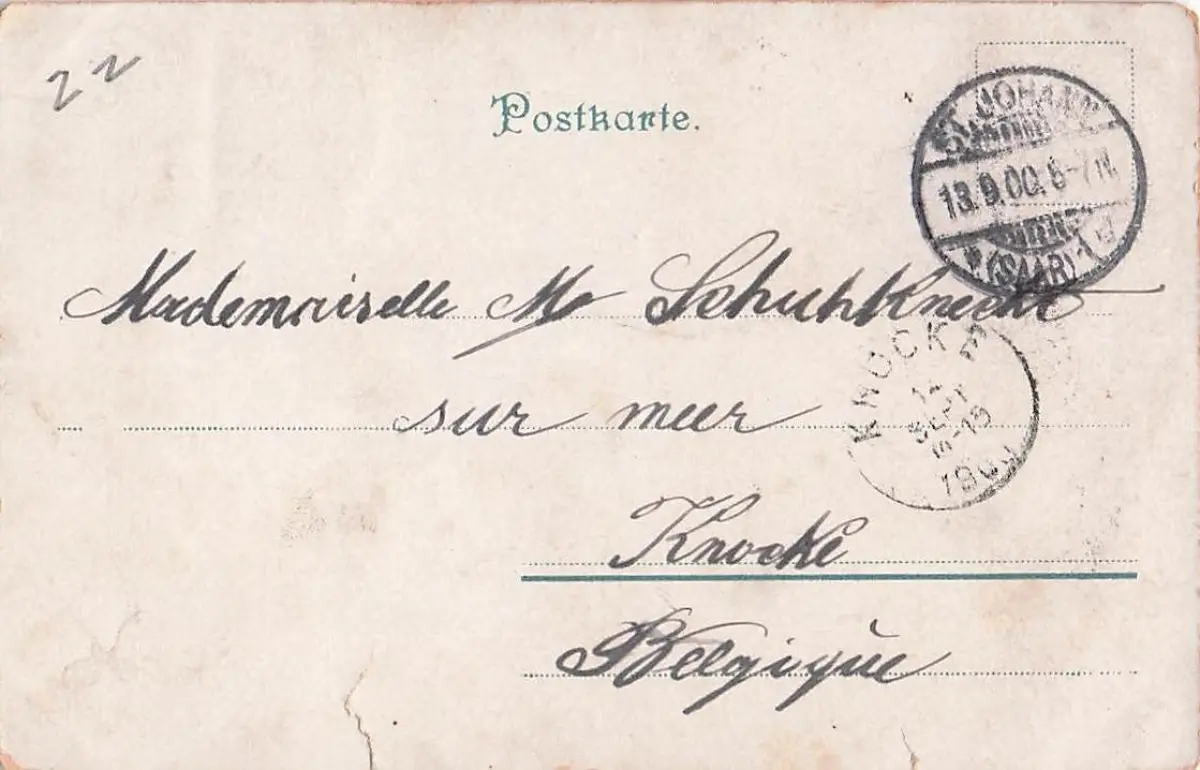 22
Postkarte.
ST. JOHANN
13.9.00. 6-7 N.
* (SAAR) 1 d
Mademoiselle M Schuhknecht
KNOCKE
sur meer
SEPT
1900
Knocke
Belgique